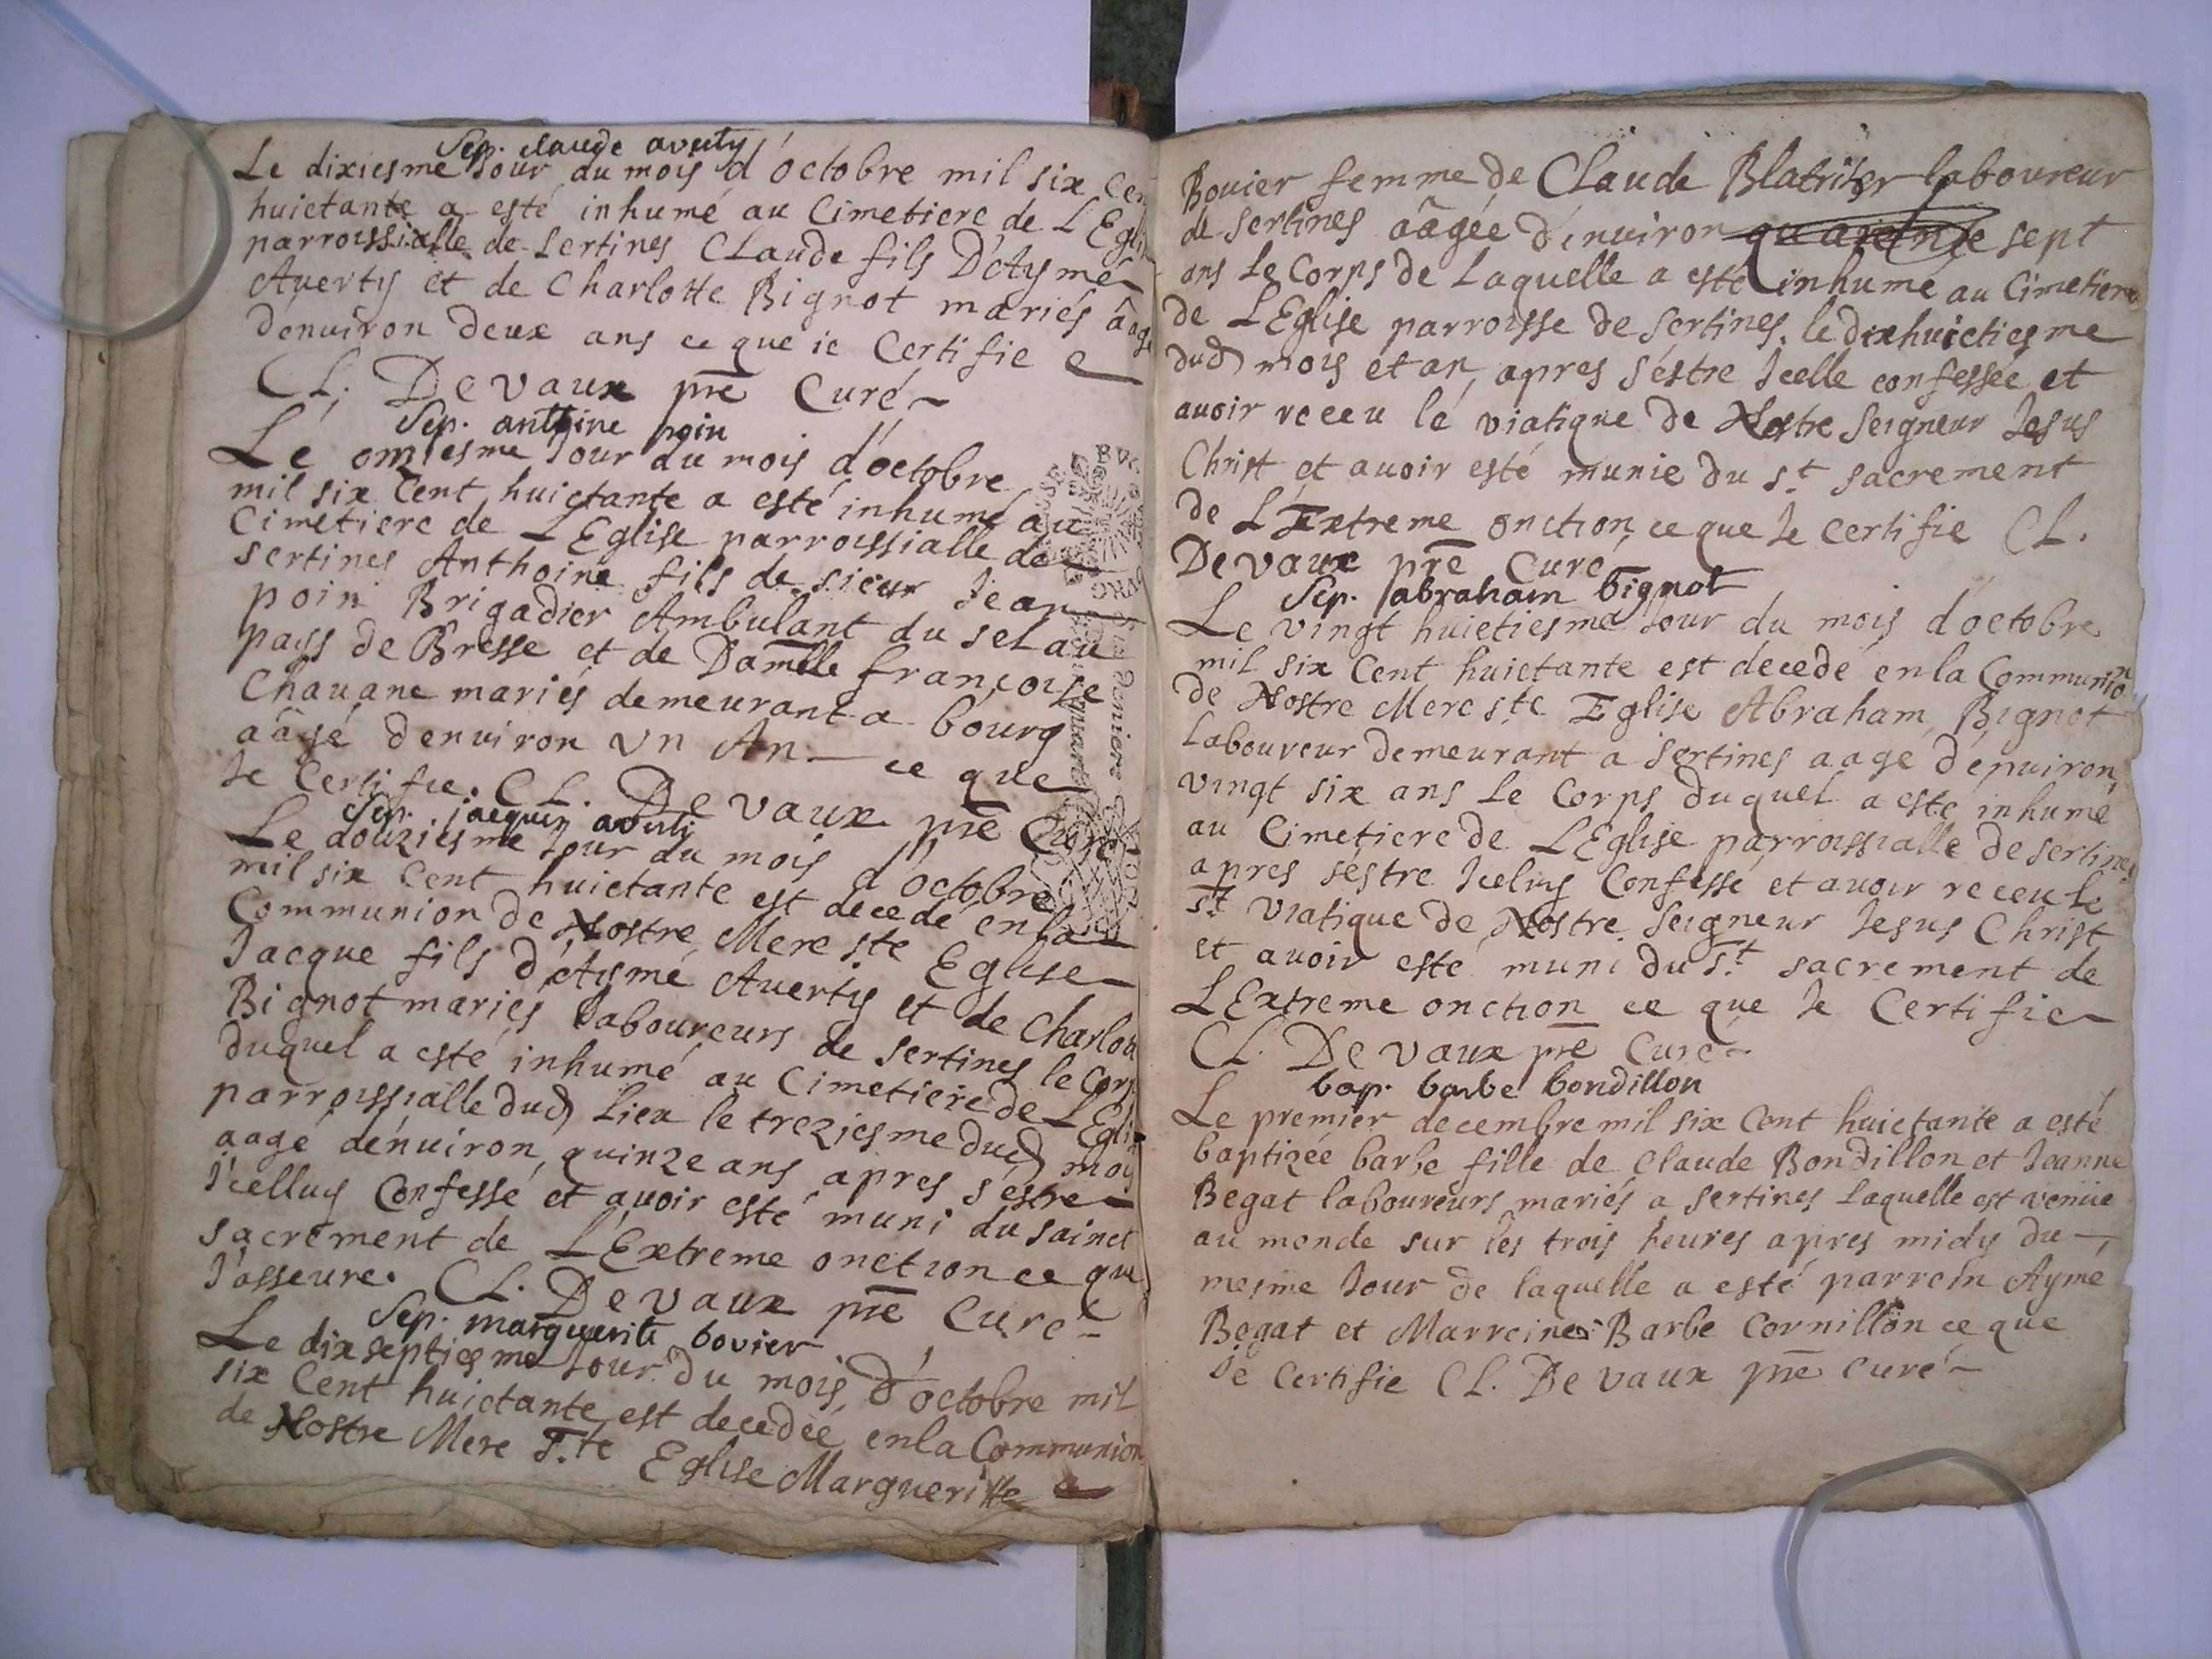 Sep. claude averty
Le dixiesme Jour du mois d'octobre mil six Cen
huictante a esté inhumé au Cimetiere de L'Egli
parroissialle de Sertines CLaude fils D'Aymé
Averty et de Charlotte Bignot mariés âagé
d'enuiron deux ans ce que ie Certifie
CL. Devaux pre Curé
Sep. anthoine poin
Le onziesme Jour du mois d'octobre
mil six Cent huictante a esté inhumé au
Cimetiere de L'Eglise parroissialle de
Sertines Anthoine fils de sieur Jean
poin Brigadier Ambulant du sel au
pays de Bresse et de Damlle françoise
Chauane mariés demeurant a bourg
aâgé d'enuiron vn An ce que
Je Certifie. CL. Devaux pre Curé
Sep. jacques averti
Le douziesme Jour du mois d'octobre
mil six Cent huictante est decedé en la
Communion de Nostre Mere ste Eglise
Jacque fils d'Aymé Auerty et de Charlott
Bignot mariés Laboureurs de Sertines le Corp
duquel a esté inhumé au Cimetiere de L'Egli
parroissialle dud Lieu le treziesme dud moy
aagé d'enuiron quinze ans apres s'estre
Icelluy Confessé et auoir esté muni du sainct
sacrement de L'Extreme onction ce que
J'asseure. CL. Devaux pre Curé
Sep. marguerite bovier
Le dixseptiesme Jour du mois d'octobre mil
six Cent huictante est decedée en la Communion
de Nostre Mere S.te Eglise Margueritte
Bouier femme de CLaude laboureur
de Sertines âagée d'enuiron quarante sept
ans Le Corps de Laquelle a esté inhumé au Cimetiere
de L'Eglise parroisse de Sertines le dixhuictiesme
dud mois et an, apres s'estre Icelle confessée et
auoir receu le viatique de Nostre Seigneur Jesus
Christ et auoir esté munie du s.t sacrement
de L'Extreme onction ce que Je certifie CL.
Devaux pre Curé
Sep. abraham bignot
Le vingt huictiesme Jour du mois d'octobre
mil six Cent huictante est decedé en la Communion
de Nostre Mere ste Eglise Abraham Bignot
Laboureur demeurant a Sertines aage d'enuiron
vingt six ans Le Corps duquel a esté inhumé
au Cimetiere de L'Eglise parroissialle de Sertines
apres s'estre Iceluy Confessé et auoir receu le
St Viatique de Nostre Seigneur Jesus Christ
et auoir esté muni du S.t sacrement de
L'Extreme onction ce que Je Certifie
CL. Devaux pre Curé
bap. barbe bondillon
Le premier decembre mil six Cent huictante a esté
baptizée barbe fille de Claude Bondillon et Jeanne
Begat laboureurs mariés a Sertines Laquelle est venüe
au monde sur les trois heures apres midy du
mesme Jour de laquelle a esté parrein Ayme
Begat et Marreine Barbe Cornillon ce que
Je Certifie CL. Devaux pre Curé